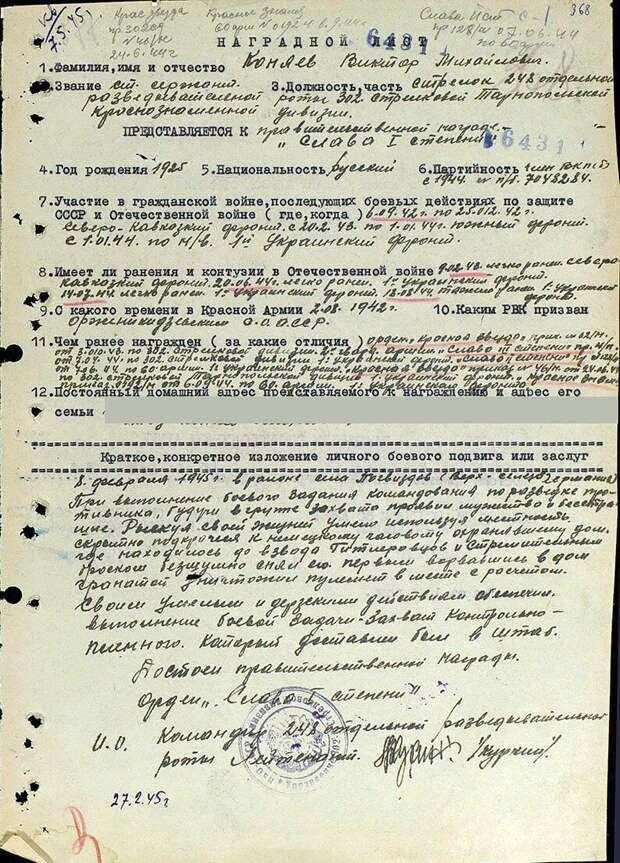 7.5.45г.
Красн звезда
пр 302сд
24.6.44г
Красное знамя
60арм № 092 от 6.9.44г
Слава II ст
пр 128/н 07.06.44
по 60арм
С-1
368
НАГРАДНОЙ ЛИСТ
6431
1.Фамилия,имя и отчество Коняев Виктор Михайлович.
2.Звание ст. сержант. 3.Должность,часть стрелок 248 отдельной
разведывательной роты 302 стрелковой Тарнопольской
Краснознаменной дивизии.
ПРЕДСТАВЛЯЕТСЯ К правительственной награде-
"Слава I степени"
6431
4.Год рождения 1925 5.Национальность русский 6.Партийность член ВКП(б)
с 1944. № п/б. 7048284.
7.Участие в гражданской войне,последующих боевых действиях по защите
СССР и Отечественной войне ( где,когда ) 6.09.42г по 25.012.42г.
Северо-Кавказкий фронт. с 20.2.43. по 1.01.44г Южный фронт.
с 1.01.44. по н/в. 1й Украинский фронт.
8.Имеет ли ранения и контузии в Отечественной войне 9.02.43. легко ранен. Северо
Кавказкий фронт. 20.06.44г. легко ранен. 1й Украинский фронт.
14.07.44 легко ранен. 1й Украинский фронт. 18.08.44 тяжело ранен. 1й Украинский
фронт.
9.С какого времени в Красной Армии 2.08.1942г. 10.Каким РВК призван
Орджоникидзевским с.о.а.с.с.р.
11.Чем ранее награжден ( за какие отличия ) орден "Красная звезда" прик. № 62/н.
от 3.010.43. "Слава III степени" пр. №/н.
от 7.04. 302 стрелковой дивизии. 1й Украинский фронт. "Слава II степени" пр № 128/н
от 7.6.44. по 60 армии. 1й Украинский фронт. "Красная звезда" приказ № 46/н. от 24.06.44
по 302 стрелковой Тарнопольской дивизии 1й Украинский фронт. и Красное Знамя
приказ от 6.09.44г. по 60 армии. 1й Украинского фронта
12.Постоянный домашний адрес представляемого к награждению и адрес его
семьи
Краткое,конкретное изложение личного боевого подвига или заслуг
8 февраля 1945г. в районе села Гогвиздев (Верх-Силезия Германия)
При выполнение боевого задания командования по разведке про-
тивника, будучи в группе захвата проявил мужество и бесстра-
шие. Рискуя своей жизний умело используя местность.
скрытно подкрался к немецкому часовому охранявшему дом.
где находилось до взвода Гитлеровцов и стремительным
броском безшумно снял его. первым ворвавшись в дом
гранатой уничтожил пулемет в месте с расчетом.
Своим умелым и дерзскими действием обеспечил.
выполнение боевой задачи-захват контрольно-
пленного. Который доставлен был в штаб.
Достоен правительственной награды.
Орден "Слава I степени"
И.О. Командир 248 отдельной разведывательной
роты лейтенант. /Куркин/.
27.2.45г.